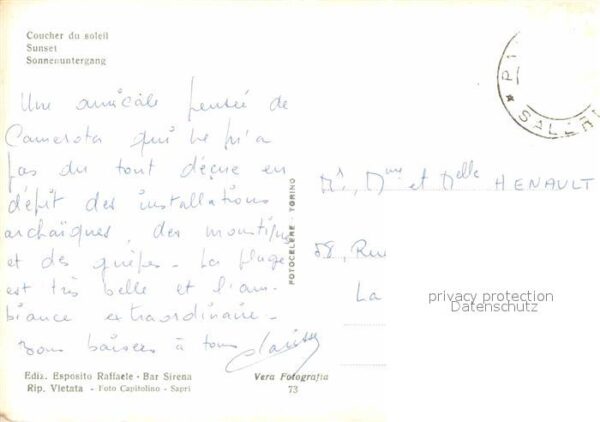 Coucher du soleil
Sunset
Sonnenuntergang
Une amicale pensée de
Camerota qui ne m'a
pas du tout déçue en
dépit des installations
archaïques, des moustiques
et des guêpes. La plage
est très belle et l'am-
biance extraordinaire.
Bons baisers à tous
FOTOCELERE - TORINO
SALER
Mr, Mme et Melle HENAULT
58, Rue
La
privacy protection
Datenschutz
Ediz. Esposito Raffaele - Bar Sirena
Rip. Vietata - Foto Capitolino - Sapri
Vera Fotografia
73